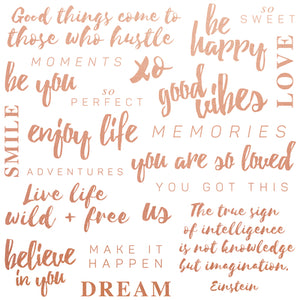 Good things come to
those who hustle
be
happy
SO
SWEET
LOVE
MOMENTS
xo
be you
SO
PERFECT
good
vibes
SMILE
enjoy life
MEMORIES
ADVENTURES
you are so loved
YOU GOT THIS
Live life
wild + free
us
The true sign
of intelligence
is not knowledge
but imagination.
Einstein
believe
in you
MAKE IT
HAPPEN
DREAM